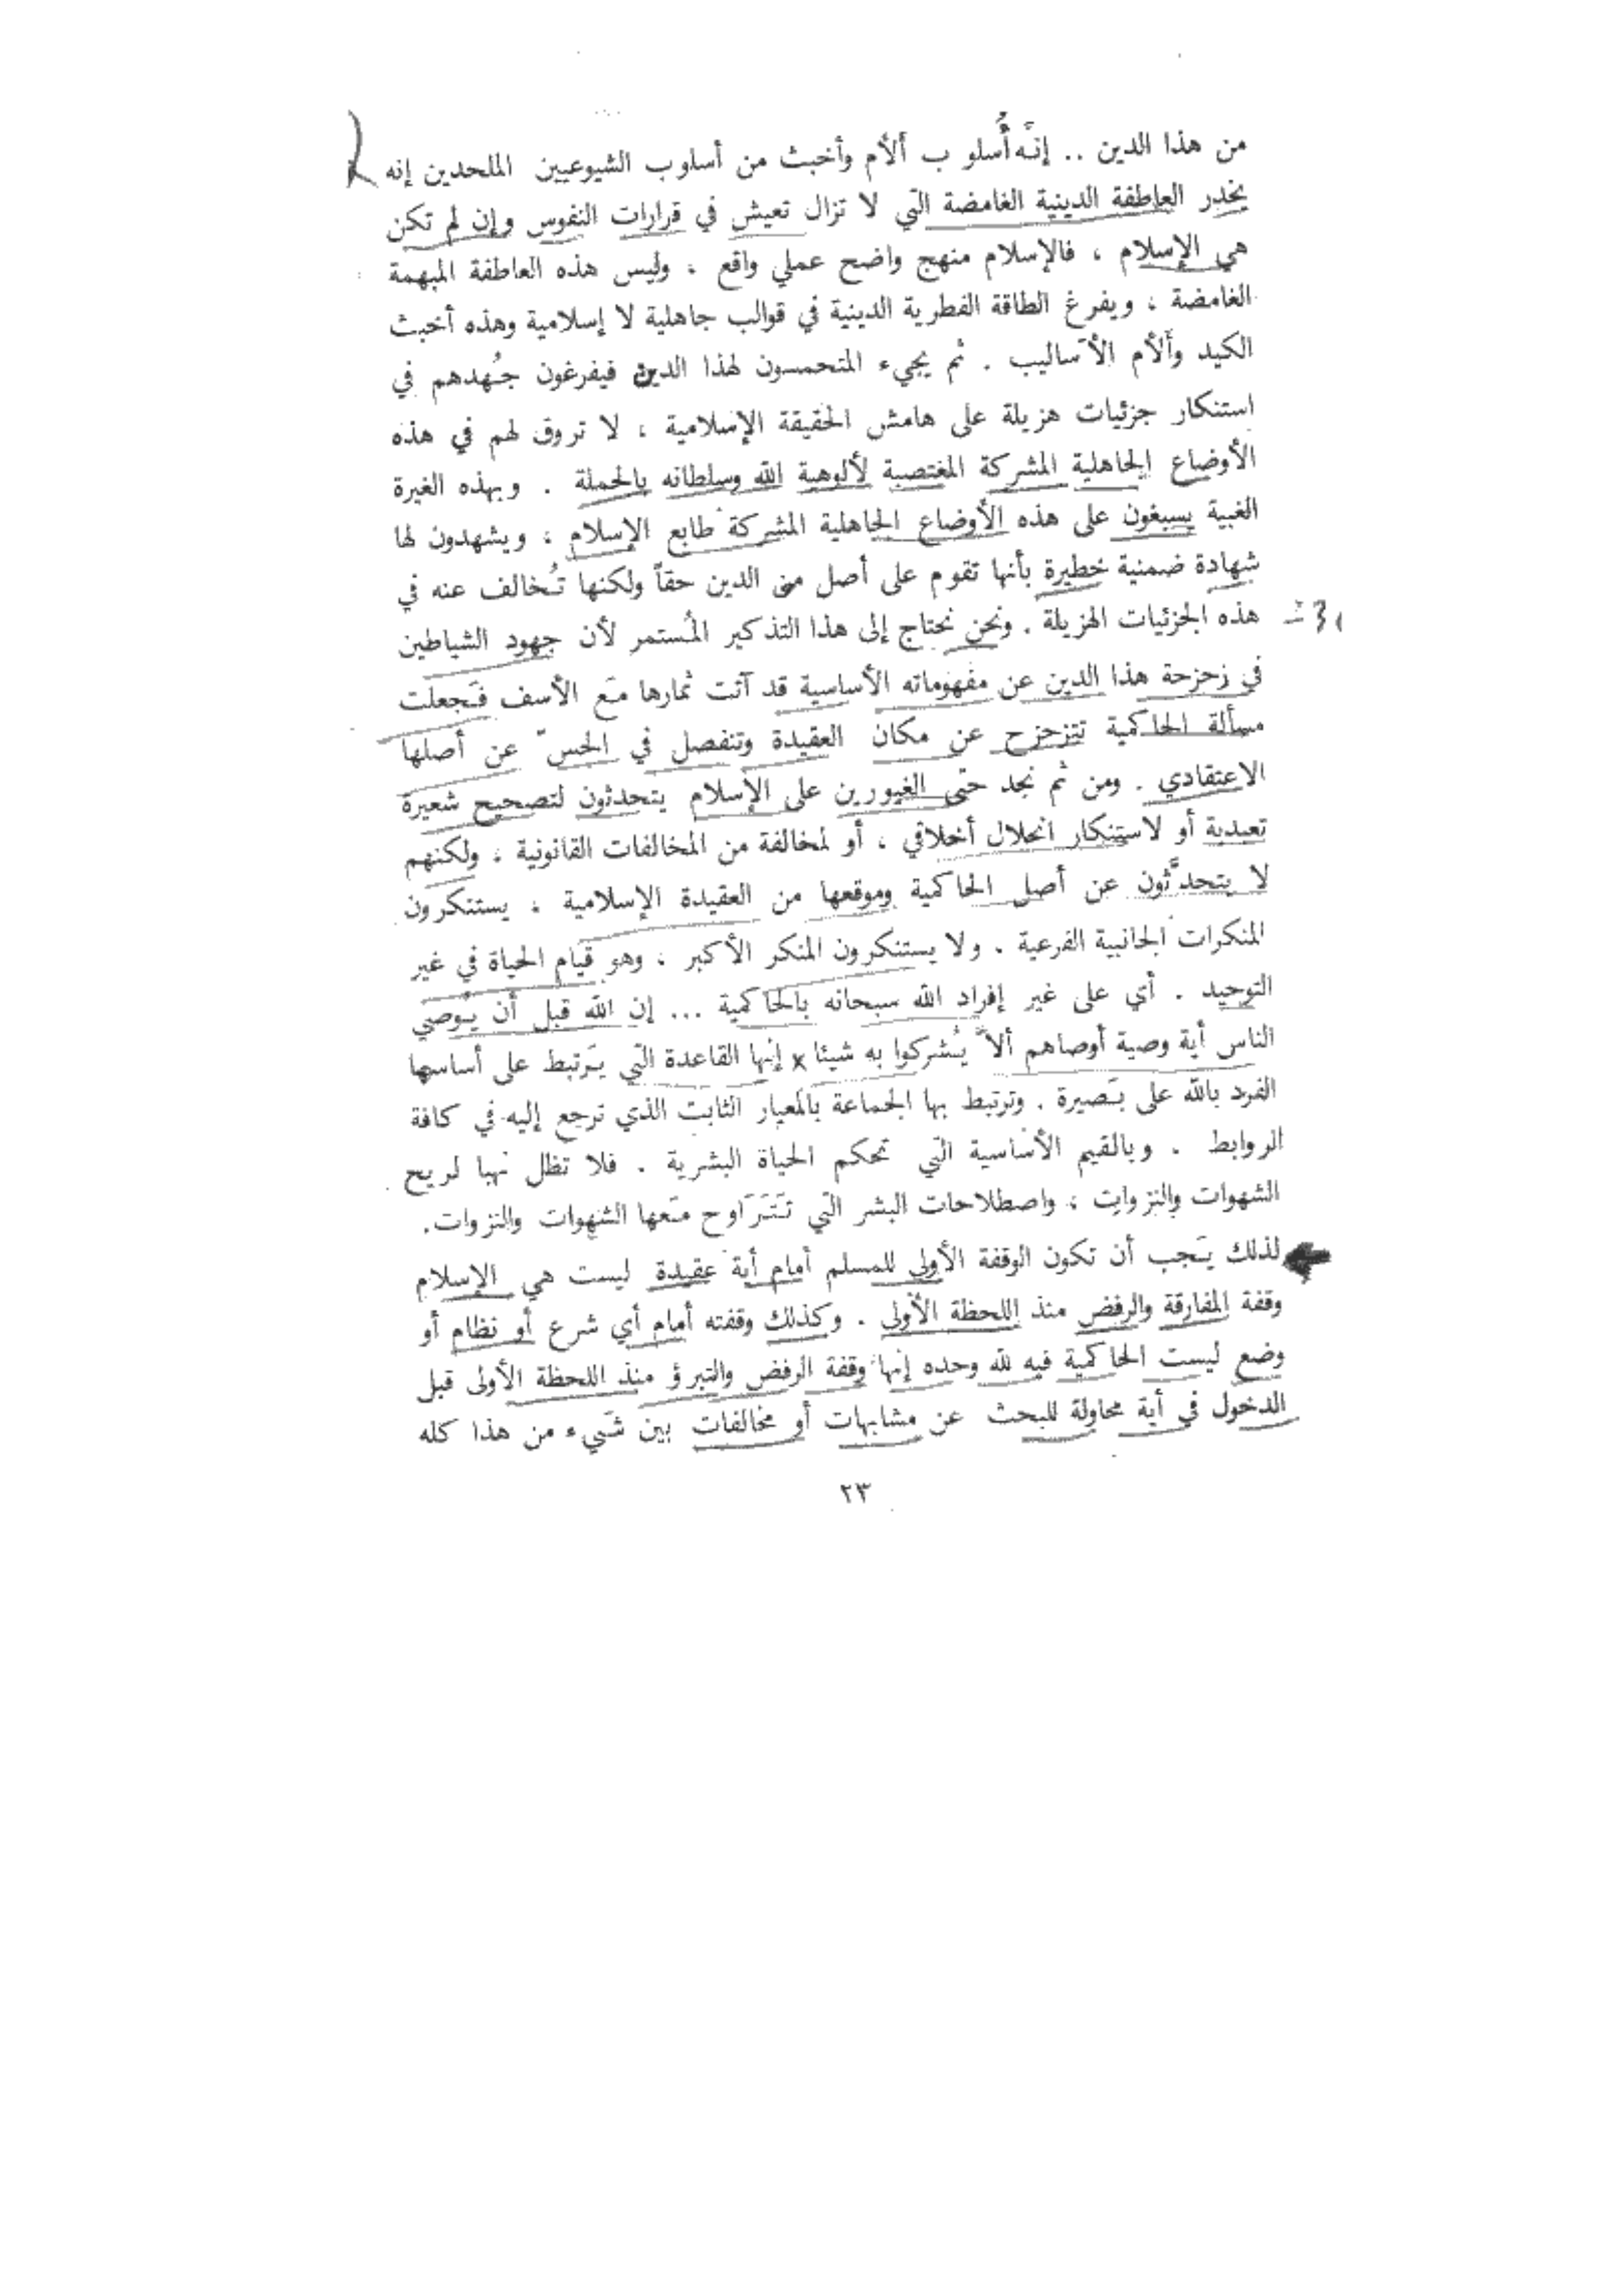 من هذا الدين .. إنَّه أُسلو ب ألأم وأخبث من أسلوب الشيوعيين الملحدين إنه
يخدر العاطفة الدينية الغامضة التي لا تزال تعيش في قرارات النفوس وإن لم تكن
هي الإسلام ، فالإسلام منهج واضح عملي واقع ، وليس هذه العاطفة المبهمة
الغامضة ، ويفرغ الطاقة الفطرية الدينية في قوالب جاهلية لا إسلامية وهذه أخبث
الكيد وألأم الأساليب . ثم يجيء المتحمسون لهذا الدين فيفرغون جُهدهم في
استنكار جزئيات هزيلة على هامش الحقيقة الإسلامية ، لا تروق لهم في هذه
الأوضاع الجاهلية المشركة المغتصبة لألوهية الله وسلطانه بالجملة . وبهذه الغيرة
الغبية يسبغون على هذه الأوضاع الجاهلية المشركة طابع الإسلام ، ويشهدون لها
شهادة ضمنية خطيرة بأنها تقوم على أصل من الدين حقاً ولكنها تُخالف عنه في
هذه الجزئيات الهزيلة . ونحن نحتاج إلى هذا التذكير المُستمر لأن جهود الشياطين
في زحزحة هذا الدين عن مفهوماته الأساسية قد آتت ثمارها مَع الأسف فَجعلت
مسألة الحاكمية تتزحزح عن مكان العقيدة وتنفصل في الحسّ عن أصلها
الاعتقادي . ومن ثم نجد حتى الغيورين على الإسلام يتحدثون لتصحيح شعيرة
تعبدية أو لاستنكار انحلال أخلاقي ، أو لمخالفة من المخالفات القانونية ، ولكنهم
لا يتحدَّثون عن أصل الحاكمية وموقعها من العقيدة الإسلامية ، يستنكرون
المنكرات الجانبية الفرعية . ولا يستنكرون المنكر الأكبر ، وهو قيام الحياة في غير
التوحيد . أي على غير إفراد الله سبحانه بالحاكمية ... إن الله قبل أن يُوصي
الناس أية وصية أوصاهم ألاَّ يُشركوا به شيئا x إنها القاعدة التي يَرتبط على أساسها
الفرد بالله على بَصيرة . وترتبط بها الجماعة بالمعيار الثابت الذي ترجع إليه في كافة
الروابط . وبالقيم الأساسية التي تحكم الحياة البشرية . فلا تظل نهبا لريح
الشهوات والنزوات ، واصطلاحات البشر التي تَتَرَاوح مَعها الشهوات والنزوات.
لذلك يَجب أن تكون الوقفة الأولى للمسلم أمام أية عقيدة ليست هي الإسلام
وقفة المفارقة والرفض منذ اللحظة الأولى . وكذلك وقفته أمام أي شرع أو نظام أو
وضع ليست الحاكمية فيه لله وحده إنها وقفة الرفض والتبرؤ منذ اللحظة الأولى قبل
الدخول في أية محاولة للبحث عن مشابهات أو مخالفات بين شَيء من هذا كله
٢٣